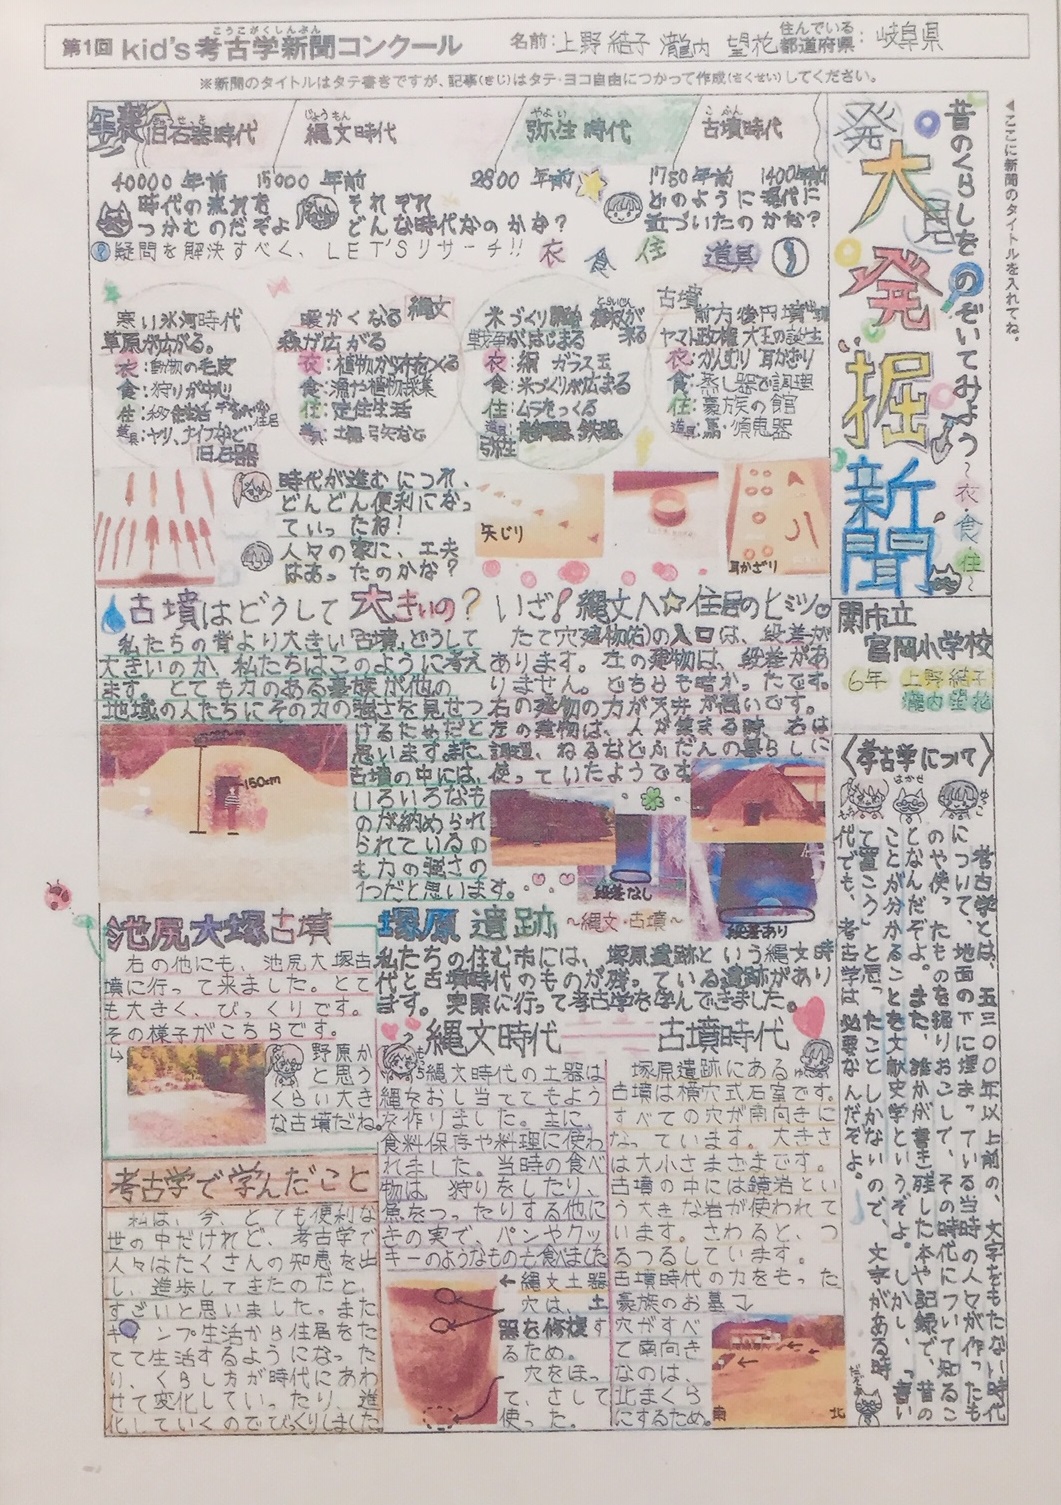 第1回 kid's考古学新聞コンクール
こうこがくしんぶん
名前: 上野 結子 瀧内 望花
住んでいる都道府県: 岐阜県
※新聞のタイトルはタテ書きですが、記事(きじ)はタテ・ヨコ自由につかって作成(さくせい)してください。
◀ここに新聞のタイトルを入れてね。
昔のくらしをのぞいてみよう〜衣・食・住〜
大発掘新聞
発見
関市立
富岡小学校
6年 上野結子
瀧内望花
年表
旧石器時代
縄文時代
じょうもん
弥生時代
やよい
古墳時代
こふん
40000年前
15000年前
2800年前
1750年前
1400年前
時代の流れを
つかむのだぞよ
それぞれ
どんな時代なのかな?
どのように現代に
近づいたのかな?
疑問を解決すべく、LET'Sリサーチ!!
衣 食 住 道具
寒い氷河時代
草原が広がる。
衣:動物の毛皮
食:狩りが中心
道具:ヤリ、ナイフなど
旧石器
縄文
暖かくなる
森が広がる
衣:植物から布をつくる
食:漁や植物採集
住:定住生活
道具:土器 弓矢など
米づくり開始
戦争がはじまる
衣:絹 ガラス玉
食:米づくりが広まる
住:ムラをつくる
道具:青銅器 鉄器
弥生
古墳
前方後円墳
ヤマト政権 大王の誕生
衣:かんむり 耳かざり
食:蒸し器で調理
住:豪族の館
道具:馬・須恵器
時代が進むにつれ、
どんどん便利になっ
ていったね!
人々の家に、工夫
はあったのかな?
矢じり
耳かざり
古墳はどうして大きいの?
私たちの背より大きい古墳、どうして
大きいのか、私たちはこのように考え
ます。とても力のある豪族が他の
地域の人たちにその力の強さを見せつ
けるためだと
思います。また、
古墳の中には、
いろいろなも
のが納められ
られているの
も力の強さの
1つだと思います。
150cm
いざ!縄文へ☆住居のヒミツ
たて穴建物(右)の入口は、段差が
あります。左の建物は、段差があ
りません。どちらも暗かったです。
右の建物の方が天井が高いです。
左の建物は、人が集まる時、右は
調理、ねるなどふだんの暮らしに
使っていたようです
段差なし
段差あり
〈考古学について〉
はかせ
考古学とは、五三〇〇年以上前の、文字をもたない時代
について、地面の下に埋まっている当時の人々が作ったも
のや使ったものを掘りおこして、その時代について知るこ
となんだぞよ。また、誰かが書き残した本や記録で、昔の
ことが分かることを文献史学というぞよ。しかし、「書い
て置こう」と思ったことしかないので、文字がある時
代でも、考古学は必要なんだぞよ。
池尻大塚古墳
右の他にも、池尻大塚古
墳に行って来ました。とて
も大きく、びっくりです。
その様子がこちらです。
野原か
と思う
くらい大き
な古墳だね。
塚原遺跡 〜縄文・古墳〜
私たちの住む市には、塚原遺跡という縄文時
代と古墳時代のものが残っている遺跡があり
ます。実際に行って考古学を学んできました。
縄文時代
縄文時代の土器は
縄をおし当ててもよう
を作りました。主に、
食料保存や料理に使わ
れました。当時の食べ
物は、狩りをしたり、
魚をつったりする他に
きの実で、パンやクッ
キーのようなものも食べました
←縄文土器
穴は、土
器を修復す
るため。
穴をほっ
て、さして
使った。
古墳時代
塚原遺跡にある
古墳は横穴式石室です。
すべての穴が南向きに
なっています。大きさ
は大小さまざまです。
古墳の中には鏡岩とい
う大きな岩が使われて
います。さわると、つ
るつるしています。
古墳時代の力をもった
豪族のお墓
穴がすべ
て南向き
なのは、
北まくら
にするため。
南 北
考古学で学んだこと
私は、今、とても便利な
世の中だけれど、考古学で
人々はたくさんの知恵を出
し、進歩してきたのだと、
すごいと思いました。また
キャンプ生活から住居をた
てて生活するようになった
り、くらし方が時代にあわ
せて変化していったり、進
化していくのでびっくりしました